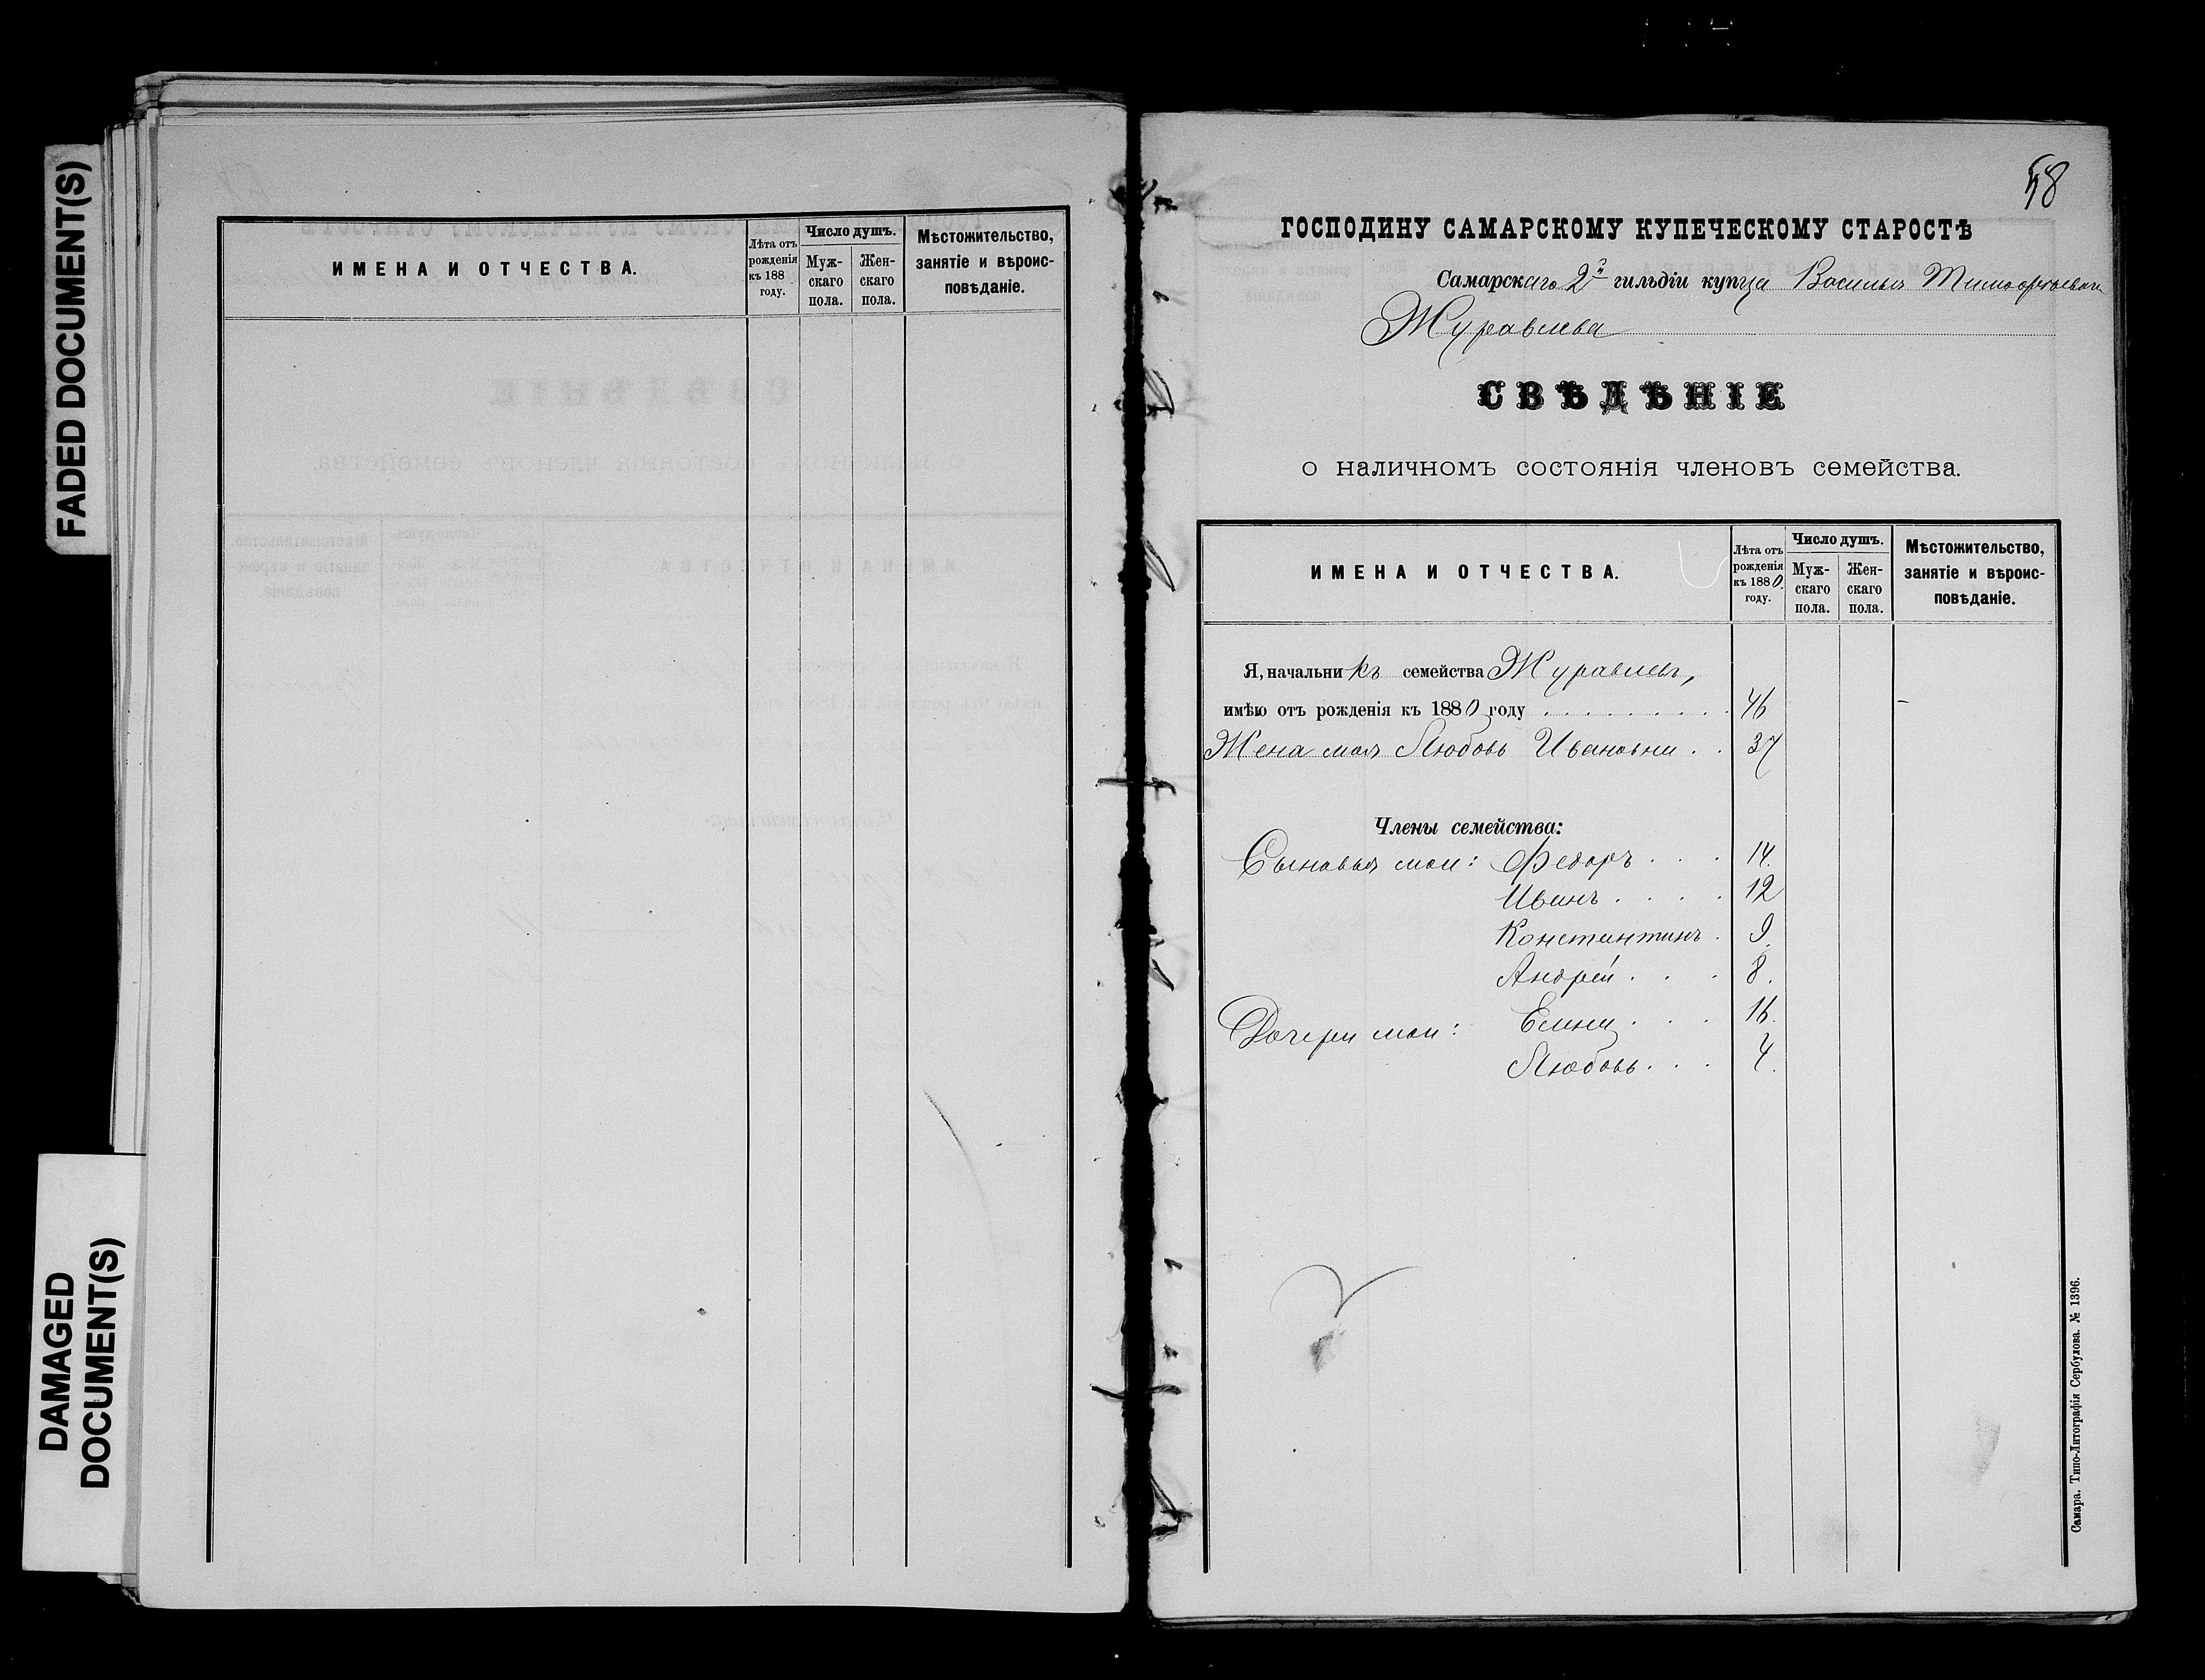 FADED DOCUMENT(S)
DAMAGED
DOCUMENT(S)
ИМЕНА И ОТЧЕСТВА.
Лѣта отъ
рожденія
къ 188
году.
Число душъ.
Муж-
скаго
пола.
Жен-
скаго
пола.
Мѣстожительство,
занятіе и вѣроис-
повѣданіе.
58
ГОСПОДИНУ САМАРСКОМУ КУПЕЧЕСКОМУ СТАРОСТѢ
Самарскаго 2й гильдіи купца Василья Тимофѣева
Журавлева
СВѢДѢНІЕ
о наличномъ состоянія членовъ семейства.
ИМЕНА И ОТЧЕСТВА.
Лѣта отъ
рожденія
къ 1880
году.
Число душъ.
Муж-
скаго
пола.
Жен-
скаго
пола.
Мѣстожительство,
занятіе и вѣроис-
повѣданіе.
Я, начальникъ семейства Журавлевъ,
имѣю отъ рожденія къ 1880 году . . . . . . . 46
Жена моя Любовь Ивановна . . 37
Члены семейства:
Сыновья мои: Федоръ . . . 14.
Иванъ . . . . 12
Константинъ . 9.
Андрей . . . 8.
Дочери мои: Елена . . . 16.
Любовь . . . 4.
Самара. Типо-Литографія Сербулова. № 1396.